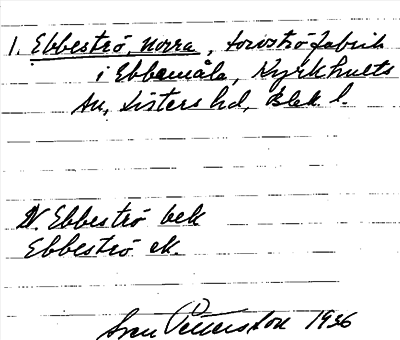 1. Ebbeströ, norra, torvströfabrik
i Ebbemåla, Kyrkhults
sn, Listers hd, Blek. l.
N. Ebbeströ bek
Ebbeströ ek.
Sven Pettersson 1936